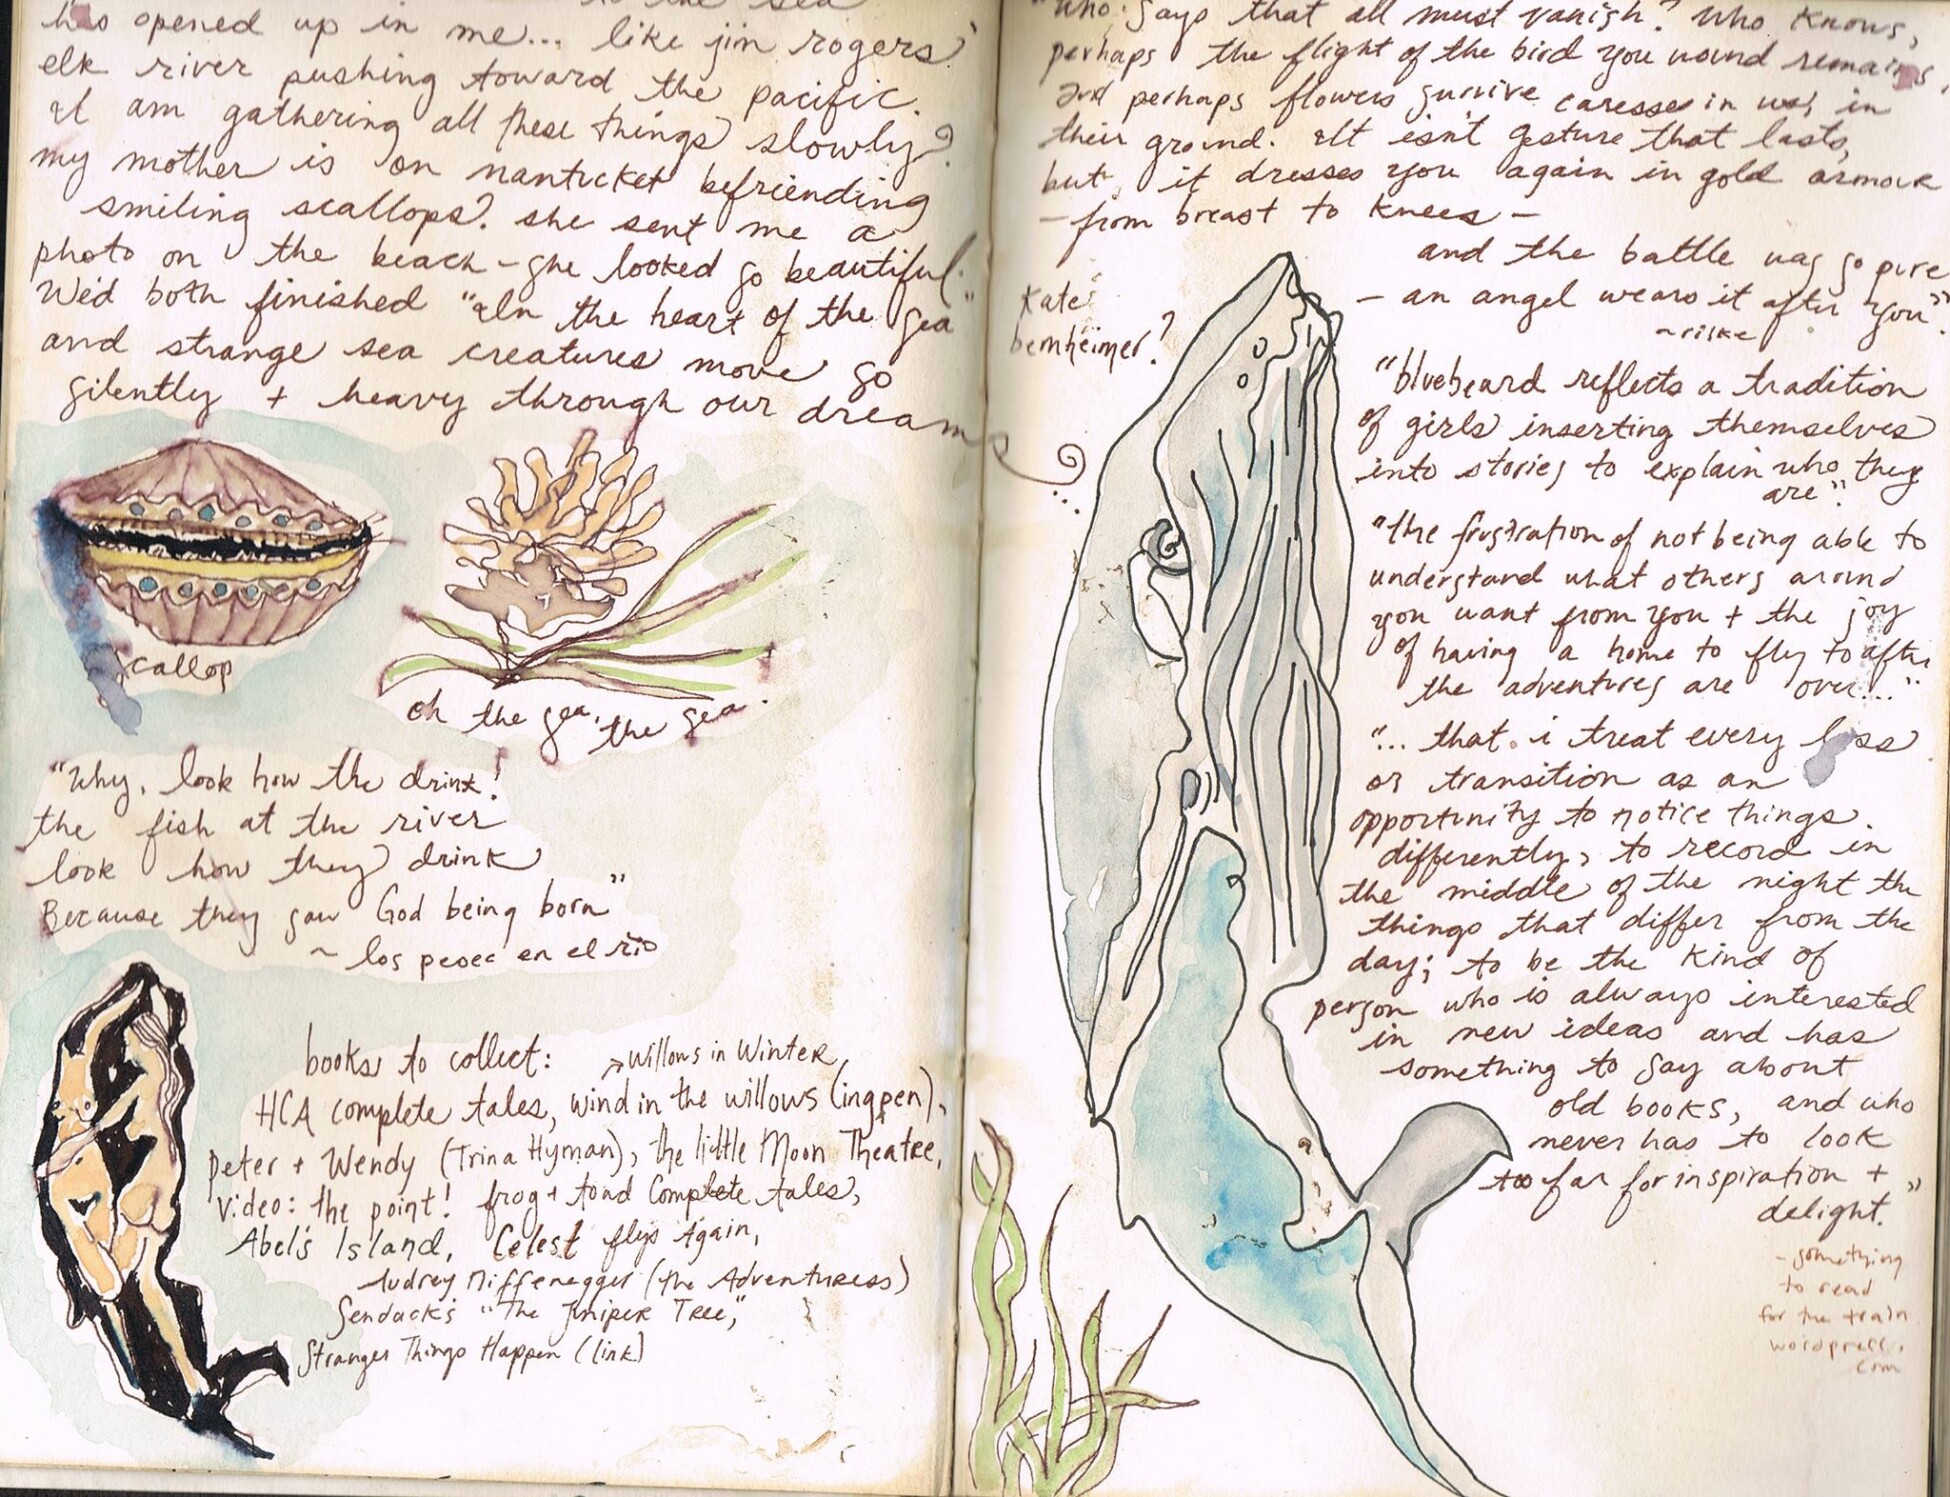 to the sea
has opened up in me... like jim rogers'
elk river pushing toward the pacific.
I am gathering all these things slowly.
my mother is on nantucket befriending
smiling scallops. she sent me a
photo on the beach - she looked so beautiful.
We'd both finished "In the heart of the sea"
and strange sea creatures move so
silently + heavy through our dreams
scallop
oh the sea, the sea.
"Why, look how the drink!
the fish at the river
look how they drink
Because they saw God being born"
~ los peces en el río
books to collect: → Willows in Winter
HCA complete tales, wind in the willows (ingpen),
peter + Wendy (Trina Hyman), the little Moon Theatre,
video: the point! frog + toad Complete tales,
Abel's Island, Celest flys Again,
Audrey Niffenegger (the Adventuress)
Sendack's "The Juniper Tree",
Stranger Things Happen (link)
"Who says that all must vanish? Who knows,
perhaps the flight of the bird you wound remains,
and perhaps flowers survive caresses in us, in
their ground. It isn't gesture that lasts,
but it dresses you again in gold armour
- from breast to knees -
and the battle was so pure
- an angel wears it after you".
~ rilke
Kate
bernheimer?
"bluebeard reflects a tradition
of girls inserting themselves
into stories to explain who they
are".
"the frustration of not being able to
understand what others around
you want from you + the joy
of having a home to fly to after
the adventures are over..."
"... that i treat every loss
or transition as an
opportunity to notice things
differently, to record in
the middle of the night the
things that differ from the
day; to be the kind of
person who is always interested
in new ideas and has
something to say about
old books, and who
never has to look
too far for inspiration +
delight."
- something
to read
for the train
wordpress.
com